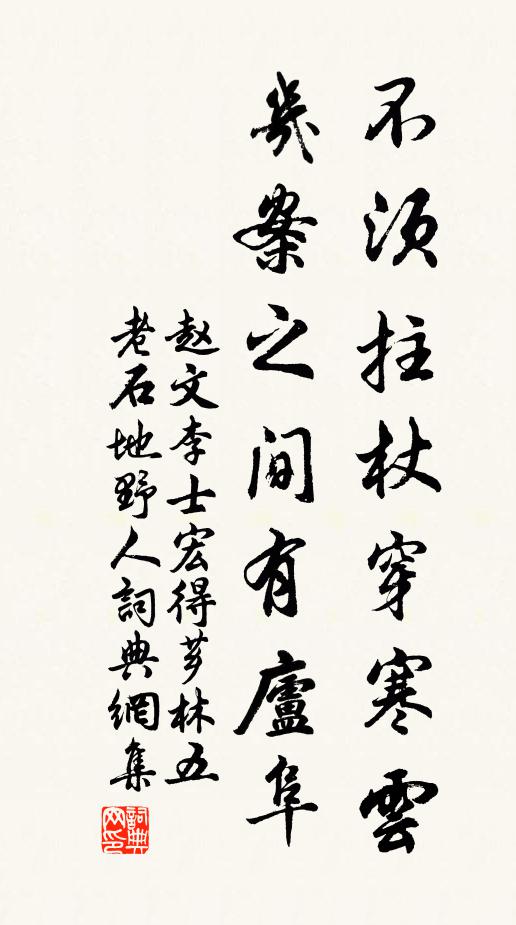 不須拄杖穿寒雲
幾案之間有廬阜
赵文李士宏得芗林五
老石地野人詞典網集
詞典
网印